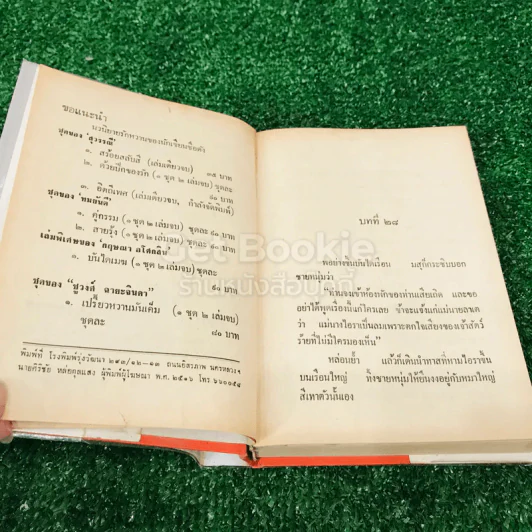 ขอแนะนำ
นวนิยายรักหวานของนักเขียนชื่อดัง
ชุดของ 'สุวรรณี'
๑. สร้อยสลับสี (เล่มเดียวจบ) ๓๕ บาท
๒. ด้วยปีกของรัก (๑ ชุด ๒ เล่มจบ) ชุดละ
๘๐ บาท
๓. (เล่มเดียวจบ, กำลังจัดพิมพ์)
ชุดของ 'ทมยันตี'
๑. คู่กรรม (๑ ชุด ๒ เล่มจบ) ชุดละ ๘๐ บาท
๒. สายรุ้ง (๑ ชุด ๒ เล่มจบ) ชุดละ ๘๐ บาท
เล่มพิเศษของ 'กฤษณา อโศกสิน'
๑. บันไดเมฆ (๑ ชุด ๒ เล่มจบ) ชุดละ
๘๐ บาท
ชุดของ "ชูวงศ์ ฉายะจินดา"
๑. เปรี้ยวหวานมันเค็ม (๑ ชุด ๒ เล่มจบ)
ชุดละ ๘๐ บาท
พิมพ์ที่ โรงพิมพ์รุ่งวัฒนา ถนนอิสรภาพ นครหลวงฯ
นายศิริชัย ผู้พิมพ์ผู้โฆษณา พ.ศ. ๒๕๑๖ โทร
บทที่ ๒๘
พอย่างขึ้นบันไดเรือน บอก
ชายหนุ่มว่า
"ท่านจงเข้าห้องพักของท่านเสียเถิด และ ขอ
อย่าได้พูดเรื่องนี้แก่ใครเลย
ว่า แม่นางไอราเป็นลมเพราะตกใจเสียงของเจ้าสัตว์
ร้ายที่ไม่มีใครมองเห็น"
หล่อนย้ำ แล้วก็เดินนำทาสที่หามไอราขึ้น
บนเรือนใหญ่ ทิ้งชายหนุ่มให้ยืนงงอยู่กับหมาใหญ่
สีเทาตัวนั้นเอง
Get Bookie
ร้านหนังสือบุ๊คกี้